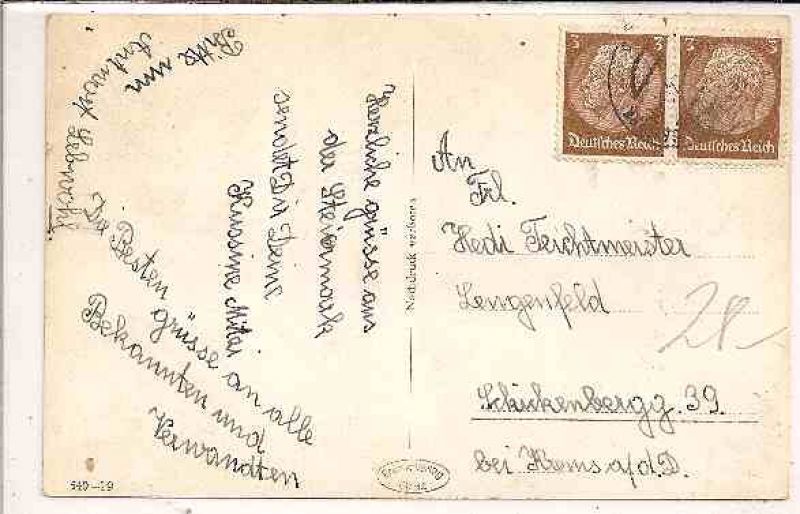 Bitte um
Antwort Lebwohl
Herzliche grüsse aus
der Steiermark
sendet Dir Deine
Kusine Mitzi
Die Besten
grüsse an alle
Bekannten und
Verwandten
3
3
Deutsches Reich
Deutsches Reich
An
Frl.
Hedi Teichtmeister
Lengenfeld
Schickenbergg. 39.
bei Krems a/d. D.
28.-
Nachdruck verboten
540-29